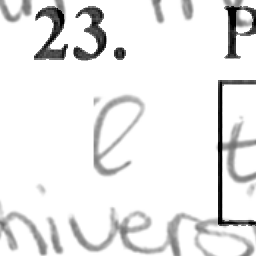 23. P
e t
nivers